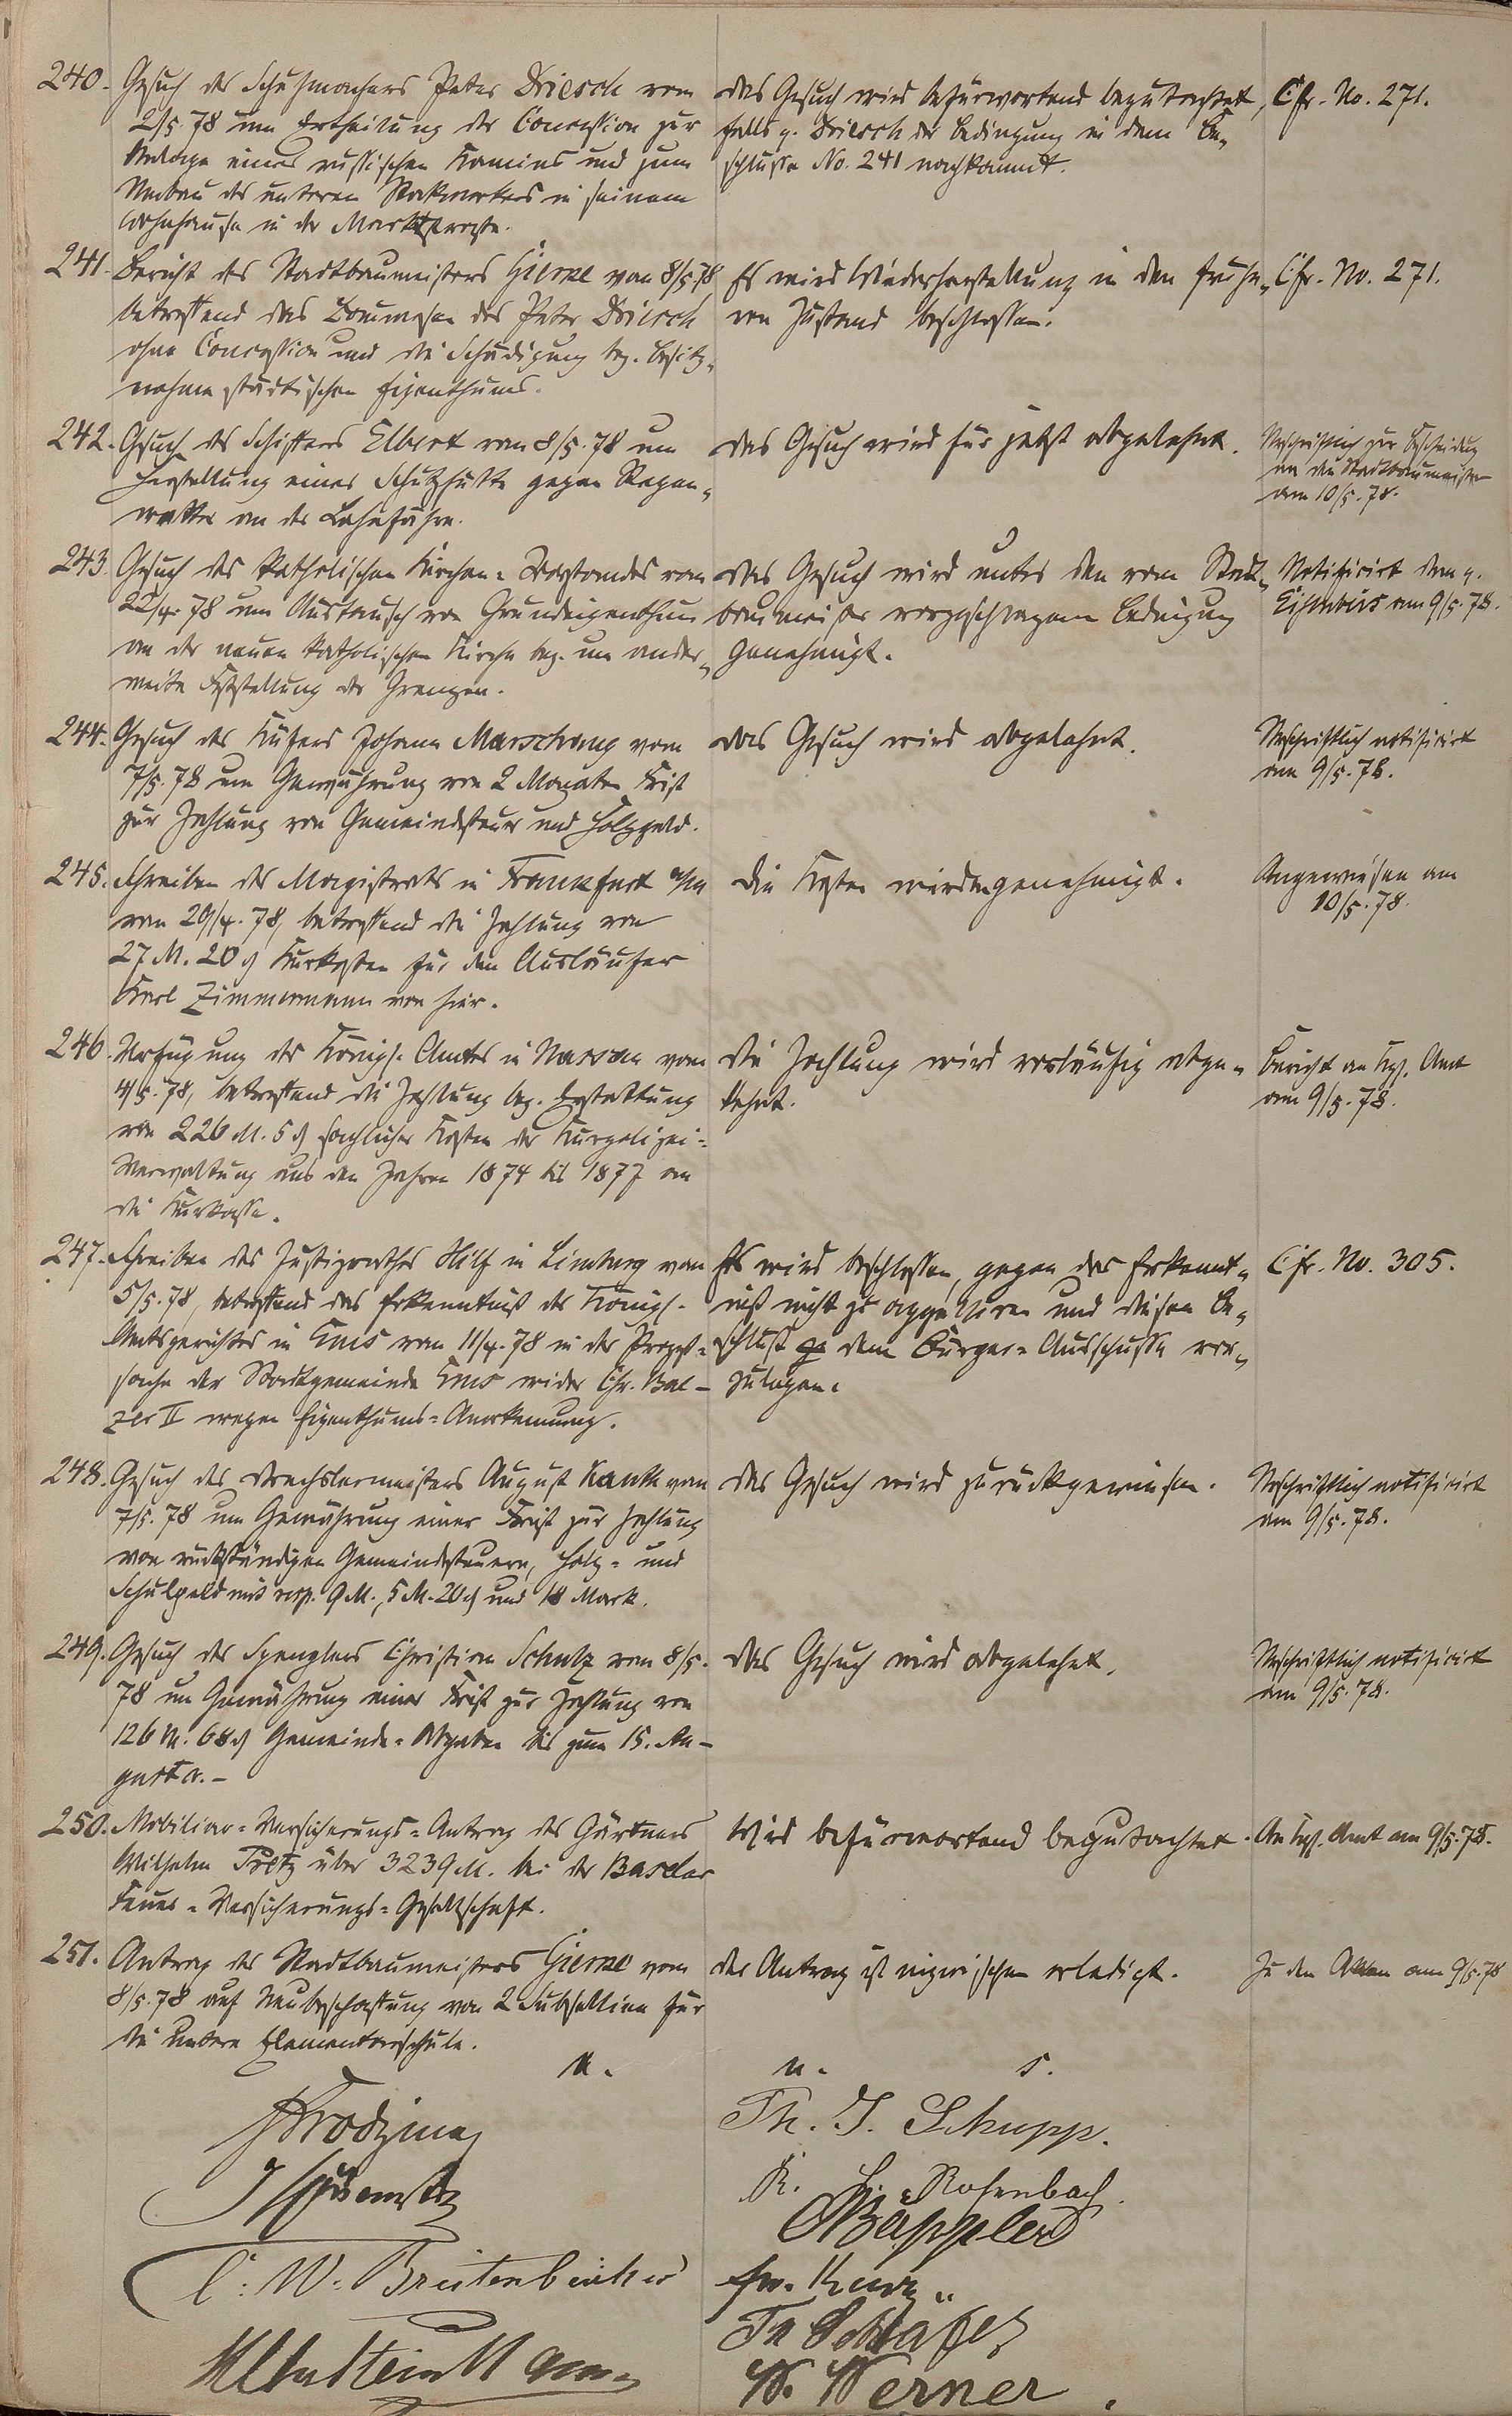 240. Gesuch des Schuhmachers Peter Driesch vom
2/5. 78 um Ertheilung der Concession zur
Anlage eines russischen Kamines und zum
Umbau des unteren Stockwerkes in seinem
Wohnhause in der Marktstraße.
das Gesuch wird befürwortend begutachtet,
falls p. Driesch der Bedingung in dem Be-
schlusse No. 241 nachkommt.
Cfr. No. 271.
241. Bericht des Stadtbaumeisters Gierse vom 8/5. 78
betreffend das Bauwesen des Peter Driesch
ohne Concession und die Schädigung bez. Besitz-
nahme städtischen Eigenthums.
Es wird Wiederherstellung in den frühe-
ren Zustand beschlossen.
Cfr. No. 271.
242. Gesuch des Schiffers Elbert vom 8/5. 78 um
Herstellung einer Schutzhütte gegen Regen-
wetter an der Lahnfähre.
das Gesuch wird für jetzt abgelehnt.
Urschriftlich zur Bescheidung
an den Stadtbaumeister
am 10/5. 78.
243. Gesuch des katholischen Kirchen-Vorstandes vom
22/4. 78 um Austausch von Grundeigenthum
an der neuen katholischen Kirche bez. um ander-
weite Feststellung der Grenzen.
das Gesuch wird unter den vom Stadt-
baumeister vorgeschlagenen Bedingung
genehmigt.
Notificirt dem p.
am 9/5. 78.
244. Gesuch des Küfers Johann Marschang vom
7/5. 78 um Gewährung von 2 Monaten Frist
zur Zahlung von Gemeindesteuer und Holzgeld.
das Gesuch wird abgelehnt.
Urschriftlich notificirt
am 9/5. 78.
245. Schreiben des Magistrats in Frankfurt a/M
vom 29/4. 78, betreffend die Zahlung von
27 M. 20 ₰ Kurkosten für den Ausläufer
Karl Zimmermann von hier.
die Kosten werden genehmigt.
Angewiesen am
10/5. 78.
246. Verfügung des Königl. Amtes in Nassau vom
4/5. 78, betreffend die Zahlung bez. Erstattung
von 226 M. 5 ₰ sachlicher Kosten der Kurpolizei-
Verwaltung aus den Jahren 1874 bis 1877 an
die Kurkasse.
die Zahlung wird vorläufig abge-
lehnt.
Bericht an Kgl. Amt
am 9/5. 78.
247. Schreiben des Justizrathes Hilf in Limburg vom
5/5. 78, betreffend das Erkenntniß des Königl.
Amtsgerichtes in Ems vom 11/4. 78 in der Prozeß-
sache der Stadtgemeinde Ems wider Chr. Bal-
zer II wegen Eigenthums-Anerkennung.
Es wird beschlossen, gegen das Erkennt-
niß nicht zu appelliren und diesen Be-
schluß dem Bürger-Ausschusse vor-
zulegen.
Cfr. No. 305.
248. Gesuch des Drechslermeisters August Kauth vom
7/5. 78 um Gewährung einer Frist zur Zahlung
von rückständigen Gemeindesteuern, Holz- und
Schulgeld mit resp. 9 M., 5 M. 20 ₰ und 18 Mark.
das Gesuch wird zurückgewiesen.
Urschriftlich notificirt
am 9/5. 78.
249. Gesuch des Spenglers Christian Schulz vom 8/5.
78 um Gewährung einer Frist zur Zahlung von
126 M. 68 ₰ Gemeinde-Abgaben bis zum 15. Au-
gust cr. –
das Gesuch wird abgelehnt.
Urschriftlich notificirt
am 9/5. 78.
250. Mobiliar-Versicherungs-Antrag des Gärtners
Wilhelm Pretz über 3239 M. bei der Baseler
Feuer-Versicherungs-Gesellschaft.
Wird befürwortend begutachtet.
An Kgl. Amt am 9/5. 78.
251. Antrag des Stadtbaumeisters Gierse vom
8/5. 78 auf Neubeschaffung von 2 Subsellien für
die untere Elementarschule.
der Antrag ist inzwischen erledigt.
Zu den Akten am 9/5. 78
u. u. s.
Th. J. Schupp.
K. Rosenbach.
C. W. Breitenbücher
Fr. Kurz
W. Werner.